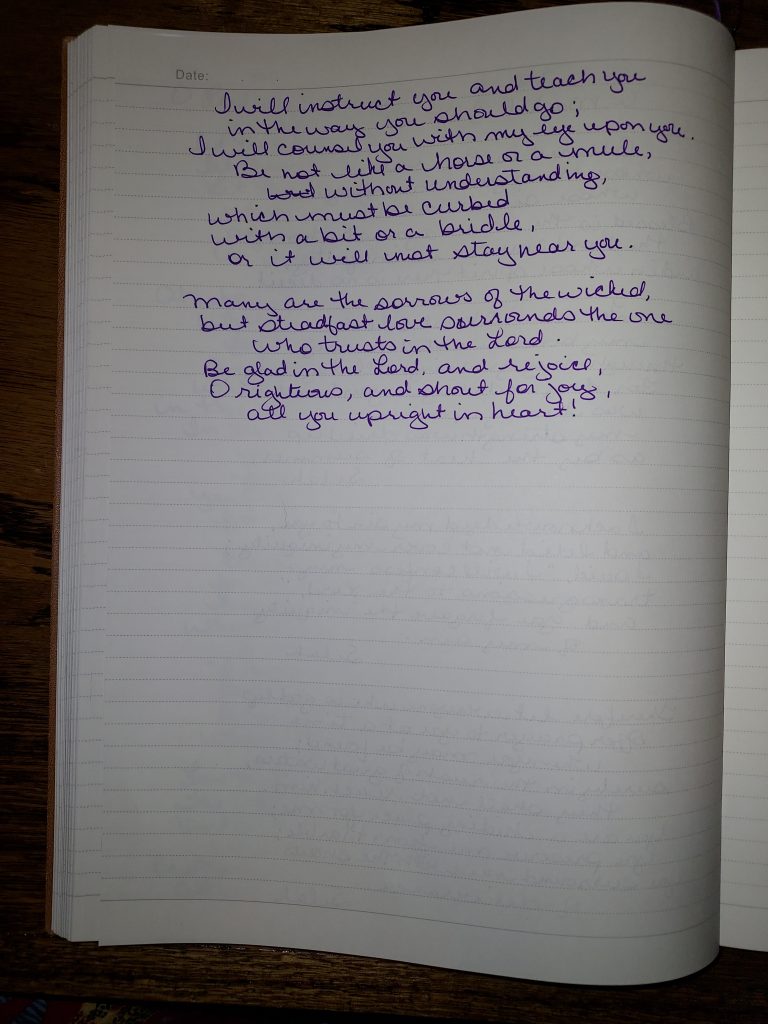 Date:
I will instruct you and teach you
in the way you should go;
I will counsel you with my eye upon you.
Be not like a horse or a mule,
without understanding,
which must be curbed
with a bit or a bridle,
or it will not stay near you.
Many are the sorrows of the wicked,
but steadfast love surrounds the one
who trusts in the Lord.
Be glad in the Lord, and rejoice,
O righteous, and shout for joy,
all you upright in heart!